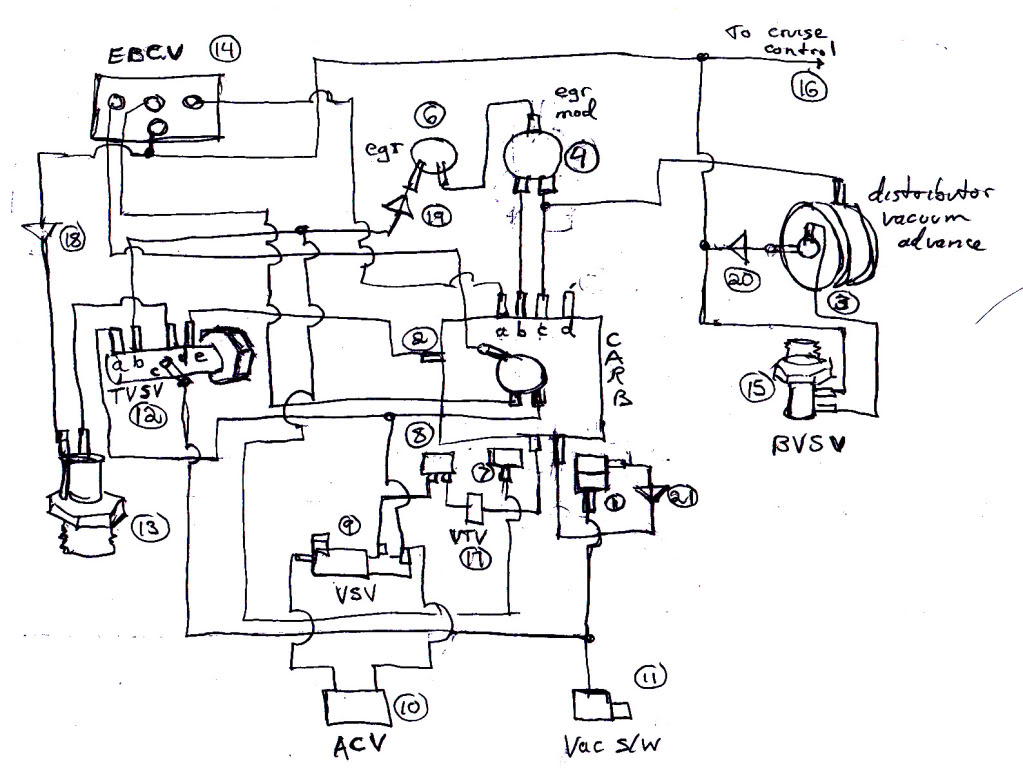 To cruise
control
16
EBCV 14
egr
mod
6
egr
4
19
distributor
vacuum
advance
18
20
3
a b c d
2
CARB
a b c d e
TVSV
12
15
BVSV
8
7
1
21
13
9
VTV
17
VSV
11
10
ACV
Vac s/w